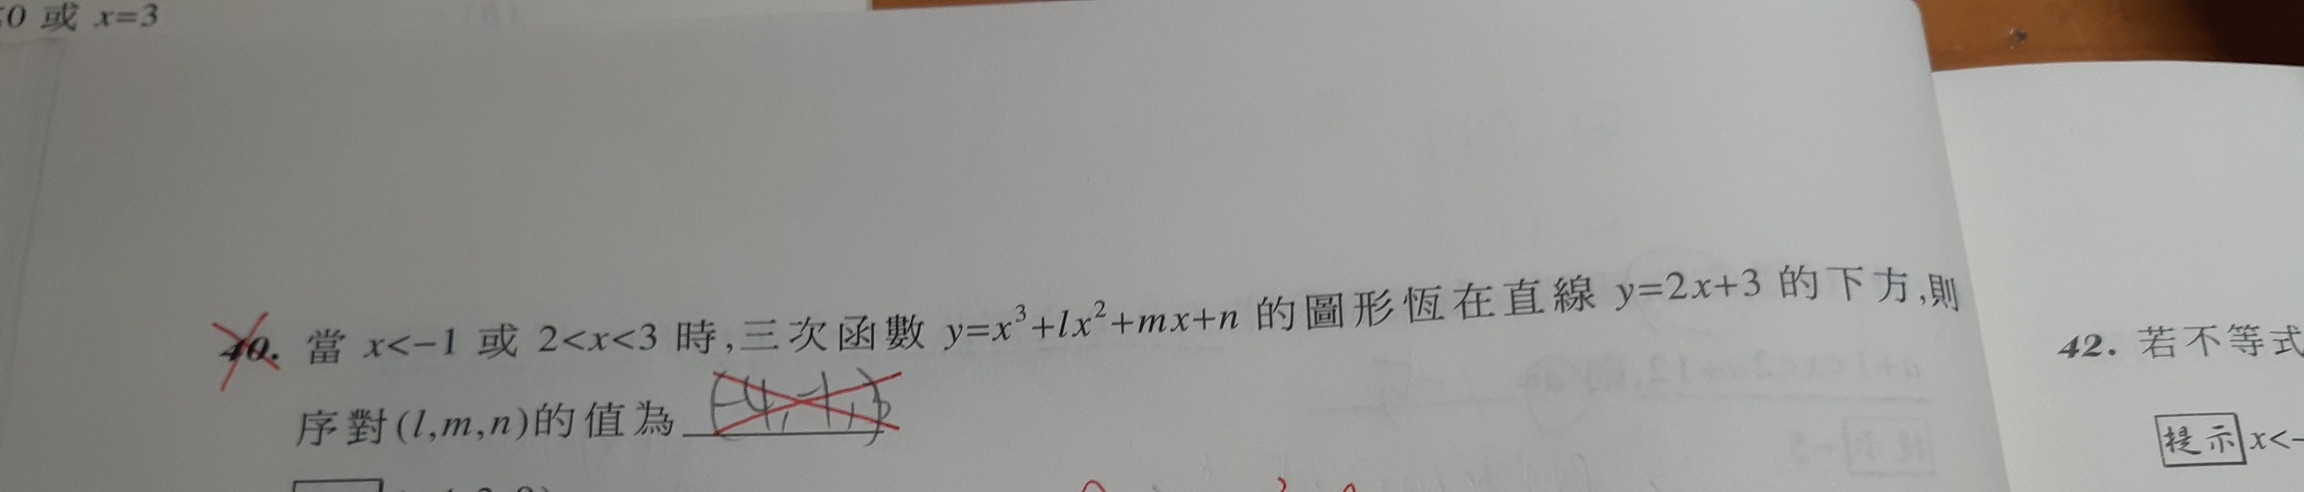 0 或 x=3
40. 當 x<-1 或 2<x<3 時,三次函數 y=x³+lx²+mx+n 的圖形恆在直線 y=2x+3 的下方,則
序對(l,m,n)的值為
42. 若不等式
提示 x<-